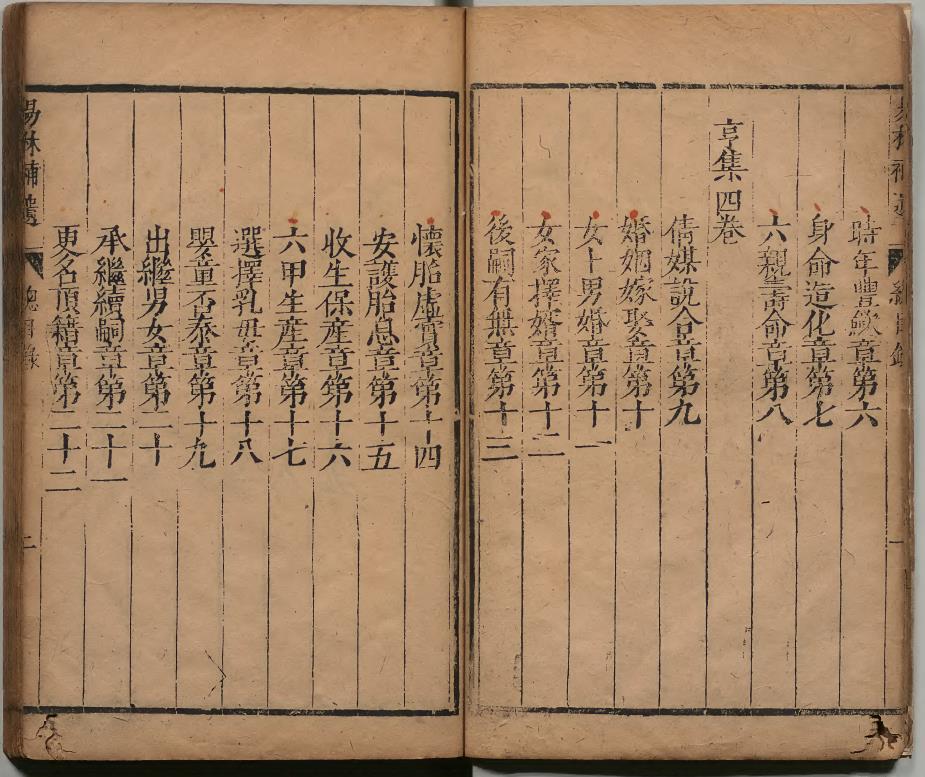 時年豐歉章第六
身命造化章第七
六親壽命章第八
亨集四卷
倩媒說合章第九
婚姻嫁娶章第十
女卜男婚章第十一
女家擇婿章第十二
後嗣有無章第十三
懷胎虛實章第十四
安護胎息章第十五
收生保產章第十六
六甲生產章第十七
選擇乳母章第十八
嬰童否泰章第十九
出繼男女章第二十
承繼續嗣章第二十一
更名頂籍章第二十二
易林補遺
總目錄
二